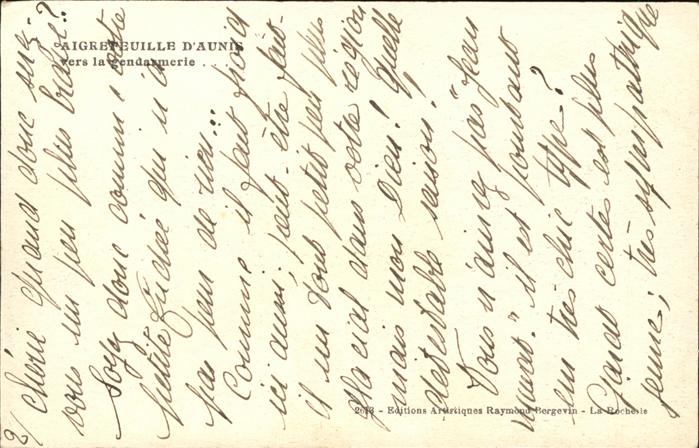 AIGREFEUILLE D'AUNIS
vers la Gendarmerie . . .
2/ Chérie quand donc serez-
vous un peu plus brave?
Soyez donc comme cette
petite qui n'a
pas peur de rien...
Comme il fait froid
ici aussi, peut-être fait-
il un tout petit peu plus
glacial dans votre région
mais mon Dieu! Quelle
détestable saison!
Vous n'aimez pas "Jean
Murat" il est pourtant
un très chic type?
Garat certes est plus
jeune, très sympathique
2613 - Editions Artistiques Raymond Bergevin - La Rochelle